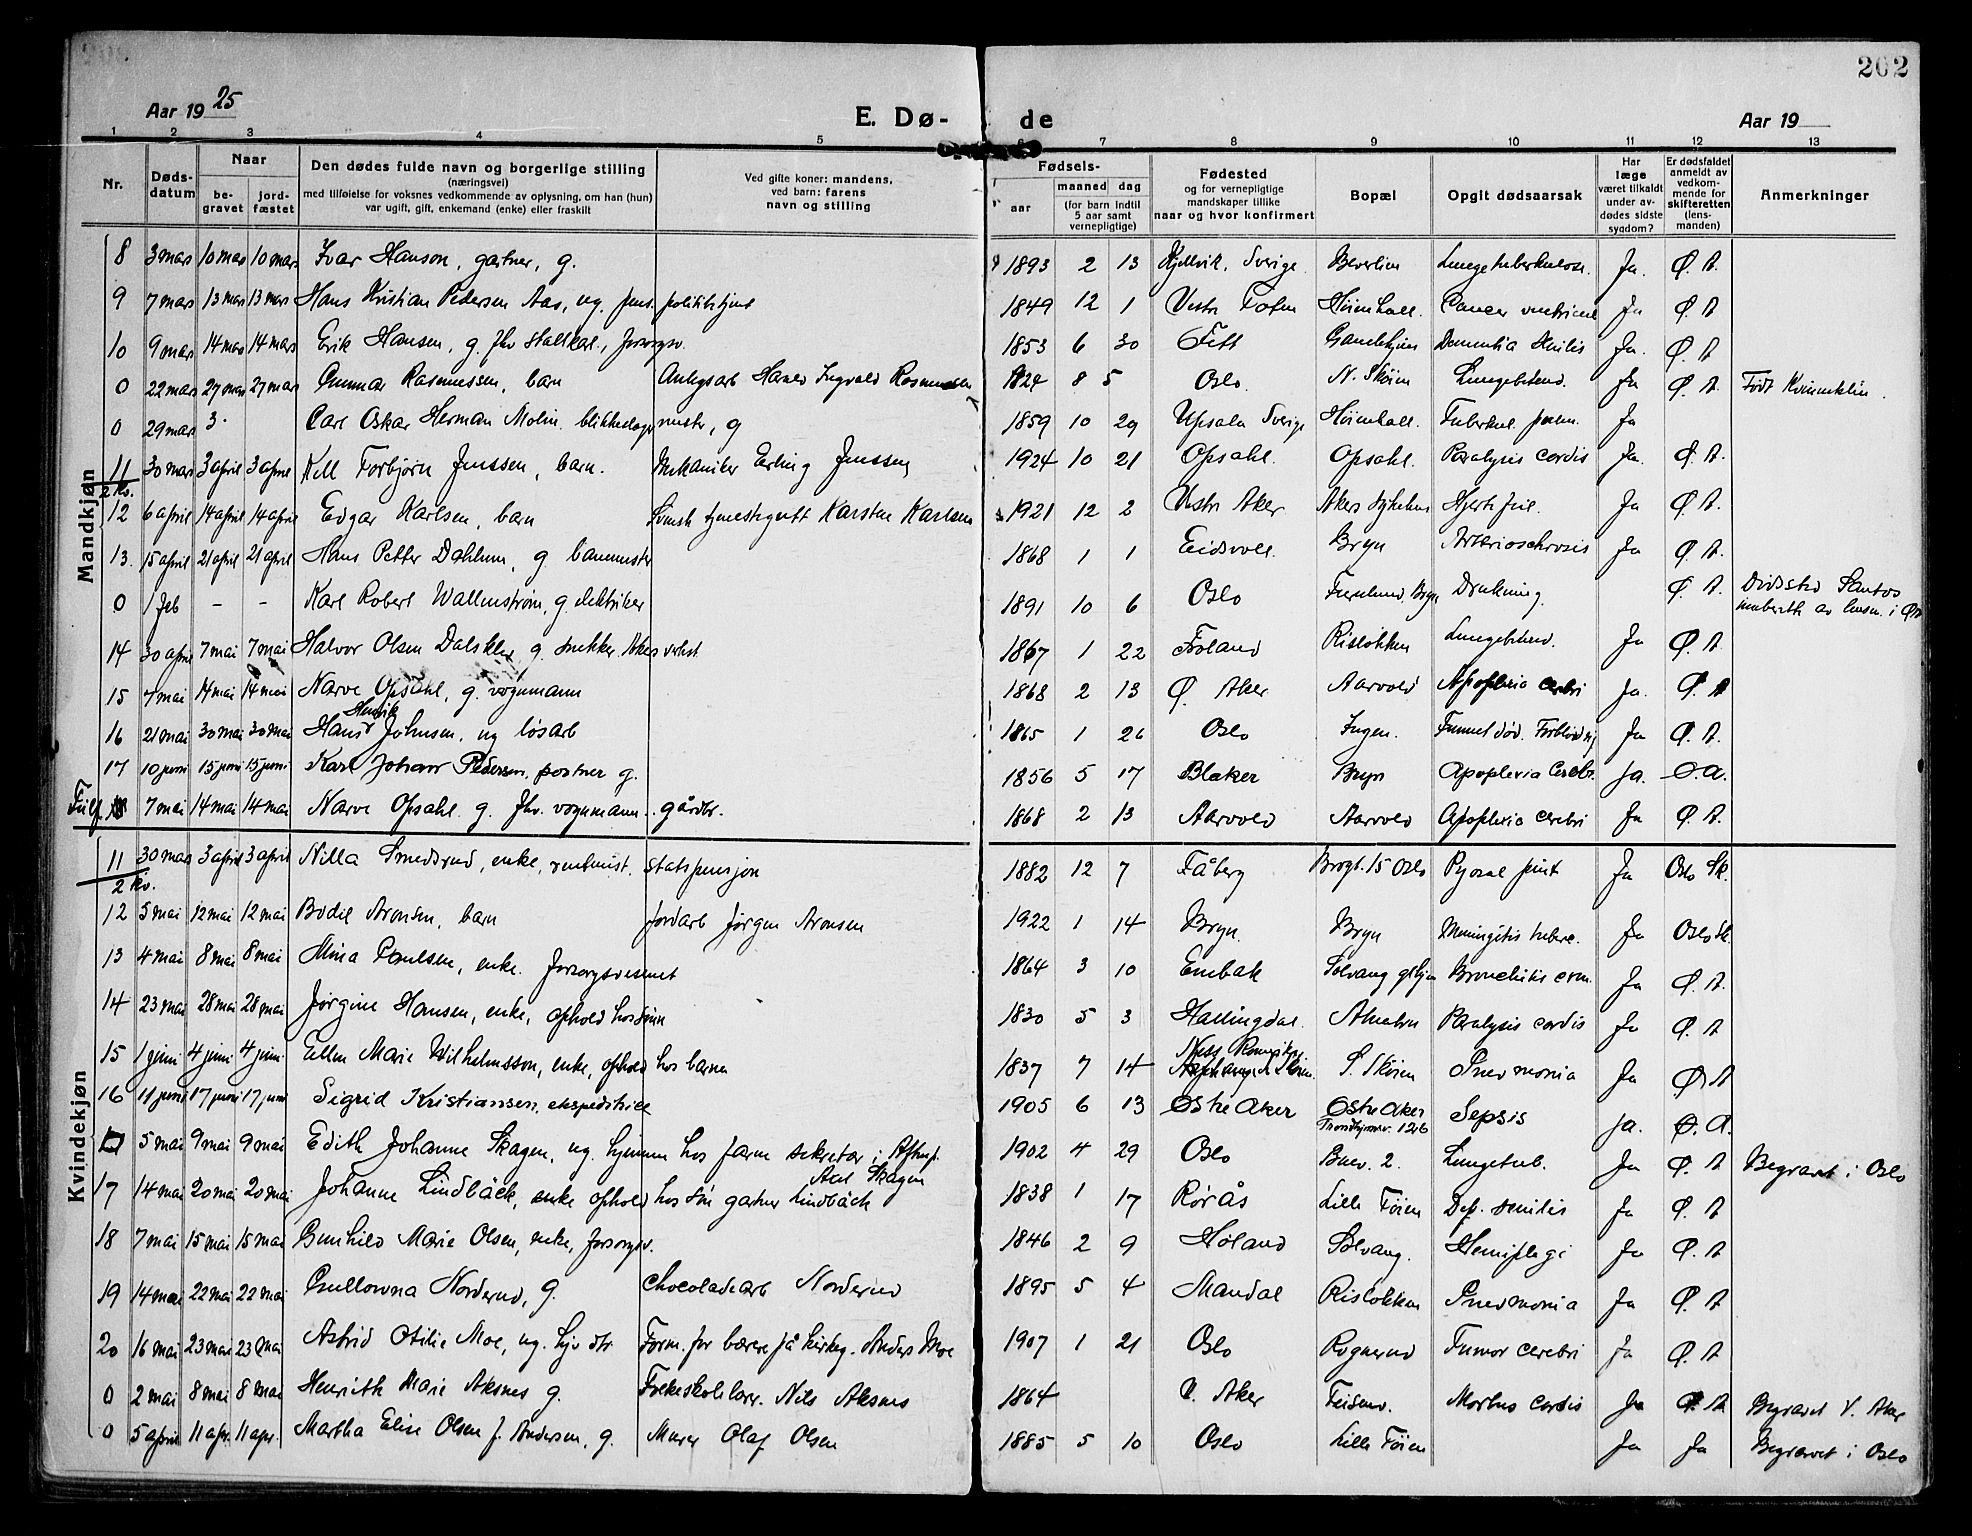 202
Aar 1925
E. Dø-
de
Aar 19
1 2 3 4 5 6 7 8 9 10 11 12 13
Nr.
Døds-
datum
Naar
be-
gravet
jord-
fæstet
Den dødes fulde navn og borgerlige stilling
(næringsvei)
med tilføielse for voksnes vedkommende av oplysning, om han (hun)
var ugift, gift, enkemand (enke) eller fraskilt
Ved gifte koner: mandens,
ved barn: farens
navn og stilling
Fødsels-
aar
maaned dag
(for barn indtil
5 aar samt
vernepligtige)
Fødested
og for vernepligtige
mandskaper tillike
naar og hvor konfirmert
Bopæl
Opgit dødsaarsak
Har
læge
været tilkaldt
under av-
dødes sidste
sygdom?
Er dødsfaldet
anmeldt av
vedkom-
mende for
skifteretten
(lens-
manden)
Anmerkninger
Mandkjøn
8 3 mars 10 mars 10 mars Ivar Hanson, gartner, g. 1893 2 13 Sverige Ja. Ø. A.
9 7 mars 13 mars 13 mars Hans Kristian Pedersen Aas, ug. 1849 12 1 Vestr Toten Høienhall. Cancer ventricul Ja Ø. A.
10 9 mars 14 mars 14 mars Erik Hansen, g. fhv stallkar, forsorgsv. 1853 6 30 Fett Gamlehjem Dementia senilis Ja. Ø. A
0 22 mars 27 mars 27 mars Gunnar Rasmussen, barn Anlegsarb Harald Ingvald Rasmussen 1924 8 5 Oslo. N. Skøien Lungebetend. Ja Ø. A. Født Kvinneklin.
0 29 mars 3. Carl Oskar Herman Molin, mestr, g 1859 10 29 Upsala Sverige Høienhall. Tuberkul. pulm. Ja
11 30 mars 3 april 3 april Kell Torbjørn Jenssen, barn. Mekaniker Erling Jenssen 1924 10 21 Opsahl. Opsahl. Paralysis cordis Ja. Ø. A.
2 Kv.
12 6 april 14 april 14 april Edgar Karlsen, barn Karsten Karlsen 1921 12 2 Vestr Aker Akers sykehus Hjertefeil. Ja Ø. A.
13. 15 april 21 april 21 april Hans Petter Dahlum, g. banemester 1868 1 1 Eidsvoll. Bryn Arterioschrosis Ja Ø. A.
0 1 feb - - Karl Robert Wallenstrøm, g. elektriker 1891 10 6 Oslo Bryn Drukning. Ø. A. Dødssted Santos
14 30 april 7 mai 7 mai Halvor Olsen g. snekker. Akers verkst 1867 1 22 Froland Risløkken Lungebetend. Ja Ø. A.
15 7 mai 14 mai 14 mai Narve Opsahl, g. vognmann 1868 2 13 Ø. Aker Aarvold Apoplexia cerebri Ja. Ø. A
Henrik
16 21 mai 30 mai 30 mai Hans Johnsen, ug løsarb 1865 1 26 Oslo Ingen. Funnet død. Forblødnig Ja Ø. A.
17 10 juni 15 juni 15 juni Karl Johan Pedersen, portner g. 1856 5 17 Blaker Bryn Apoplexia Cerebr. Ja. Ø. A.
7 mai 14 mai 14 mai Narve Opsahl. g. fhv. vognmann. gårdbr. 1868 2 13 Aarvold Aarvold Apoplexia cerebri Ja Ø. A.
Kvindekjøn
11 30 mars 3 april 3 april Nilla Smedsrud, enke, statspensjon 1882 12 7 Fåberg 15 Oslo Ja Oslo Sk.
2 kv.
12 5 mai 12 mai 12 mai Bodil Aronsen, barn Jordarb Jørgen Aronsen 1922 1 14 Bryn. Bryn Meningitis tuberc. Ja Oslo Sk.
13 4 mai 8 mai 8 mai Mina Paulsen, enke. Forsorgsvesenet 1864 3 10 Enebak Solvang Bronchitis crn. Ja Ø. A.
14 23 mai 28 mai 28 mai Jørgine Hansen, enke, ophold hos sønn 1830 5 3 Hallingdal. Alnabru Paralysis cordis Ja Ø. A
15 1 juni 4 juni 4 juni. Ellen Marie Wilhelmsson, enke, ophold hos barna 1837 7 14 Ness Romerike S. Skøien Pnevmonia Ja Ø A
16 11 juni 17 juni 17 juni Sigrid Kristiansen, ekspeditrice 1905 6 13 Østre Aker Østre Aker Sepsis Ja. Ø. A.
Trondhjemsv. 126
5 mai 9 mai 9 mai Edith Johanne Skagen, ug. hjemme hos farm sekretær i Aftenp. 1902 4 29 Oslo 2. Lungetub. Ja Ø. A Begravet i Oslo
Axel Skagen
17 14 mai 20 mai 20 mai Johanne Lindbäck, enke ophold hos søn gartner Lindbäck 1838 1 17 Rørås Lille Tøien Dep. senilis Ja Ø. A
18 7 mai 15 mai 15 mai Gunhild Marie Olsen, enke, forsorgsv. 1846 2 9 Høland Solvang. Hemiplegi Ja Ø. A
19 14 mai 22 mai 22 mai Gullowna Norderud, g. Chocoladearb Norderud 1895 5 4 Mandal Risløkken Pnevmonia Ja Ø. A
20 16 mai 23 mai 23 mai Astrid Otilie Moe, ug. hjv dtr. Form. for bærere på kirkeg. Anders Moe 1907 1 21 Oslo Rognerud Tumor cerebri Ja Ø. A
0 2 mai 8 mai 8 mai Henriette Marie Aksnes g. Folkeskolelær. Nils Aksnes 1864 V. Aker Teisenv. Morbus cordis Ja Ø. A Begravet V. Aker
0 5 april 11 apr. 11 apr. Martha Elise Olsen f. Andersen, g. Murer Olaf Olsen 1885 5 10 Oslo Lille Tøien Ja Ja Begravet i Oslo